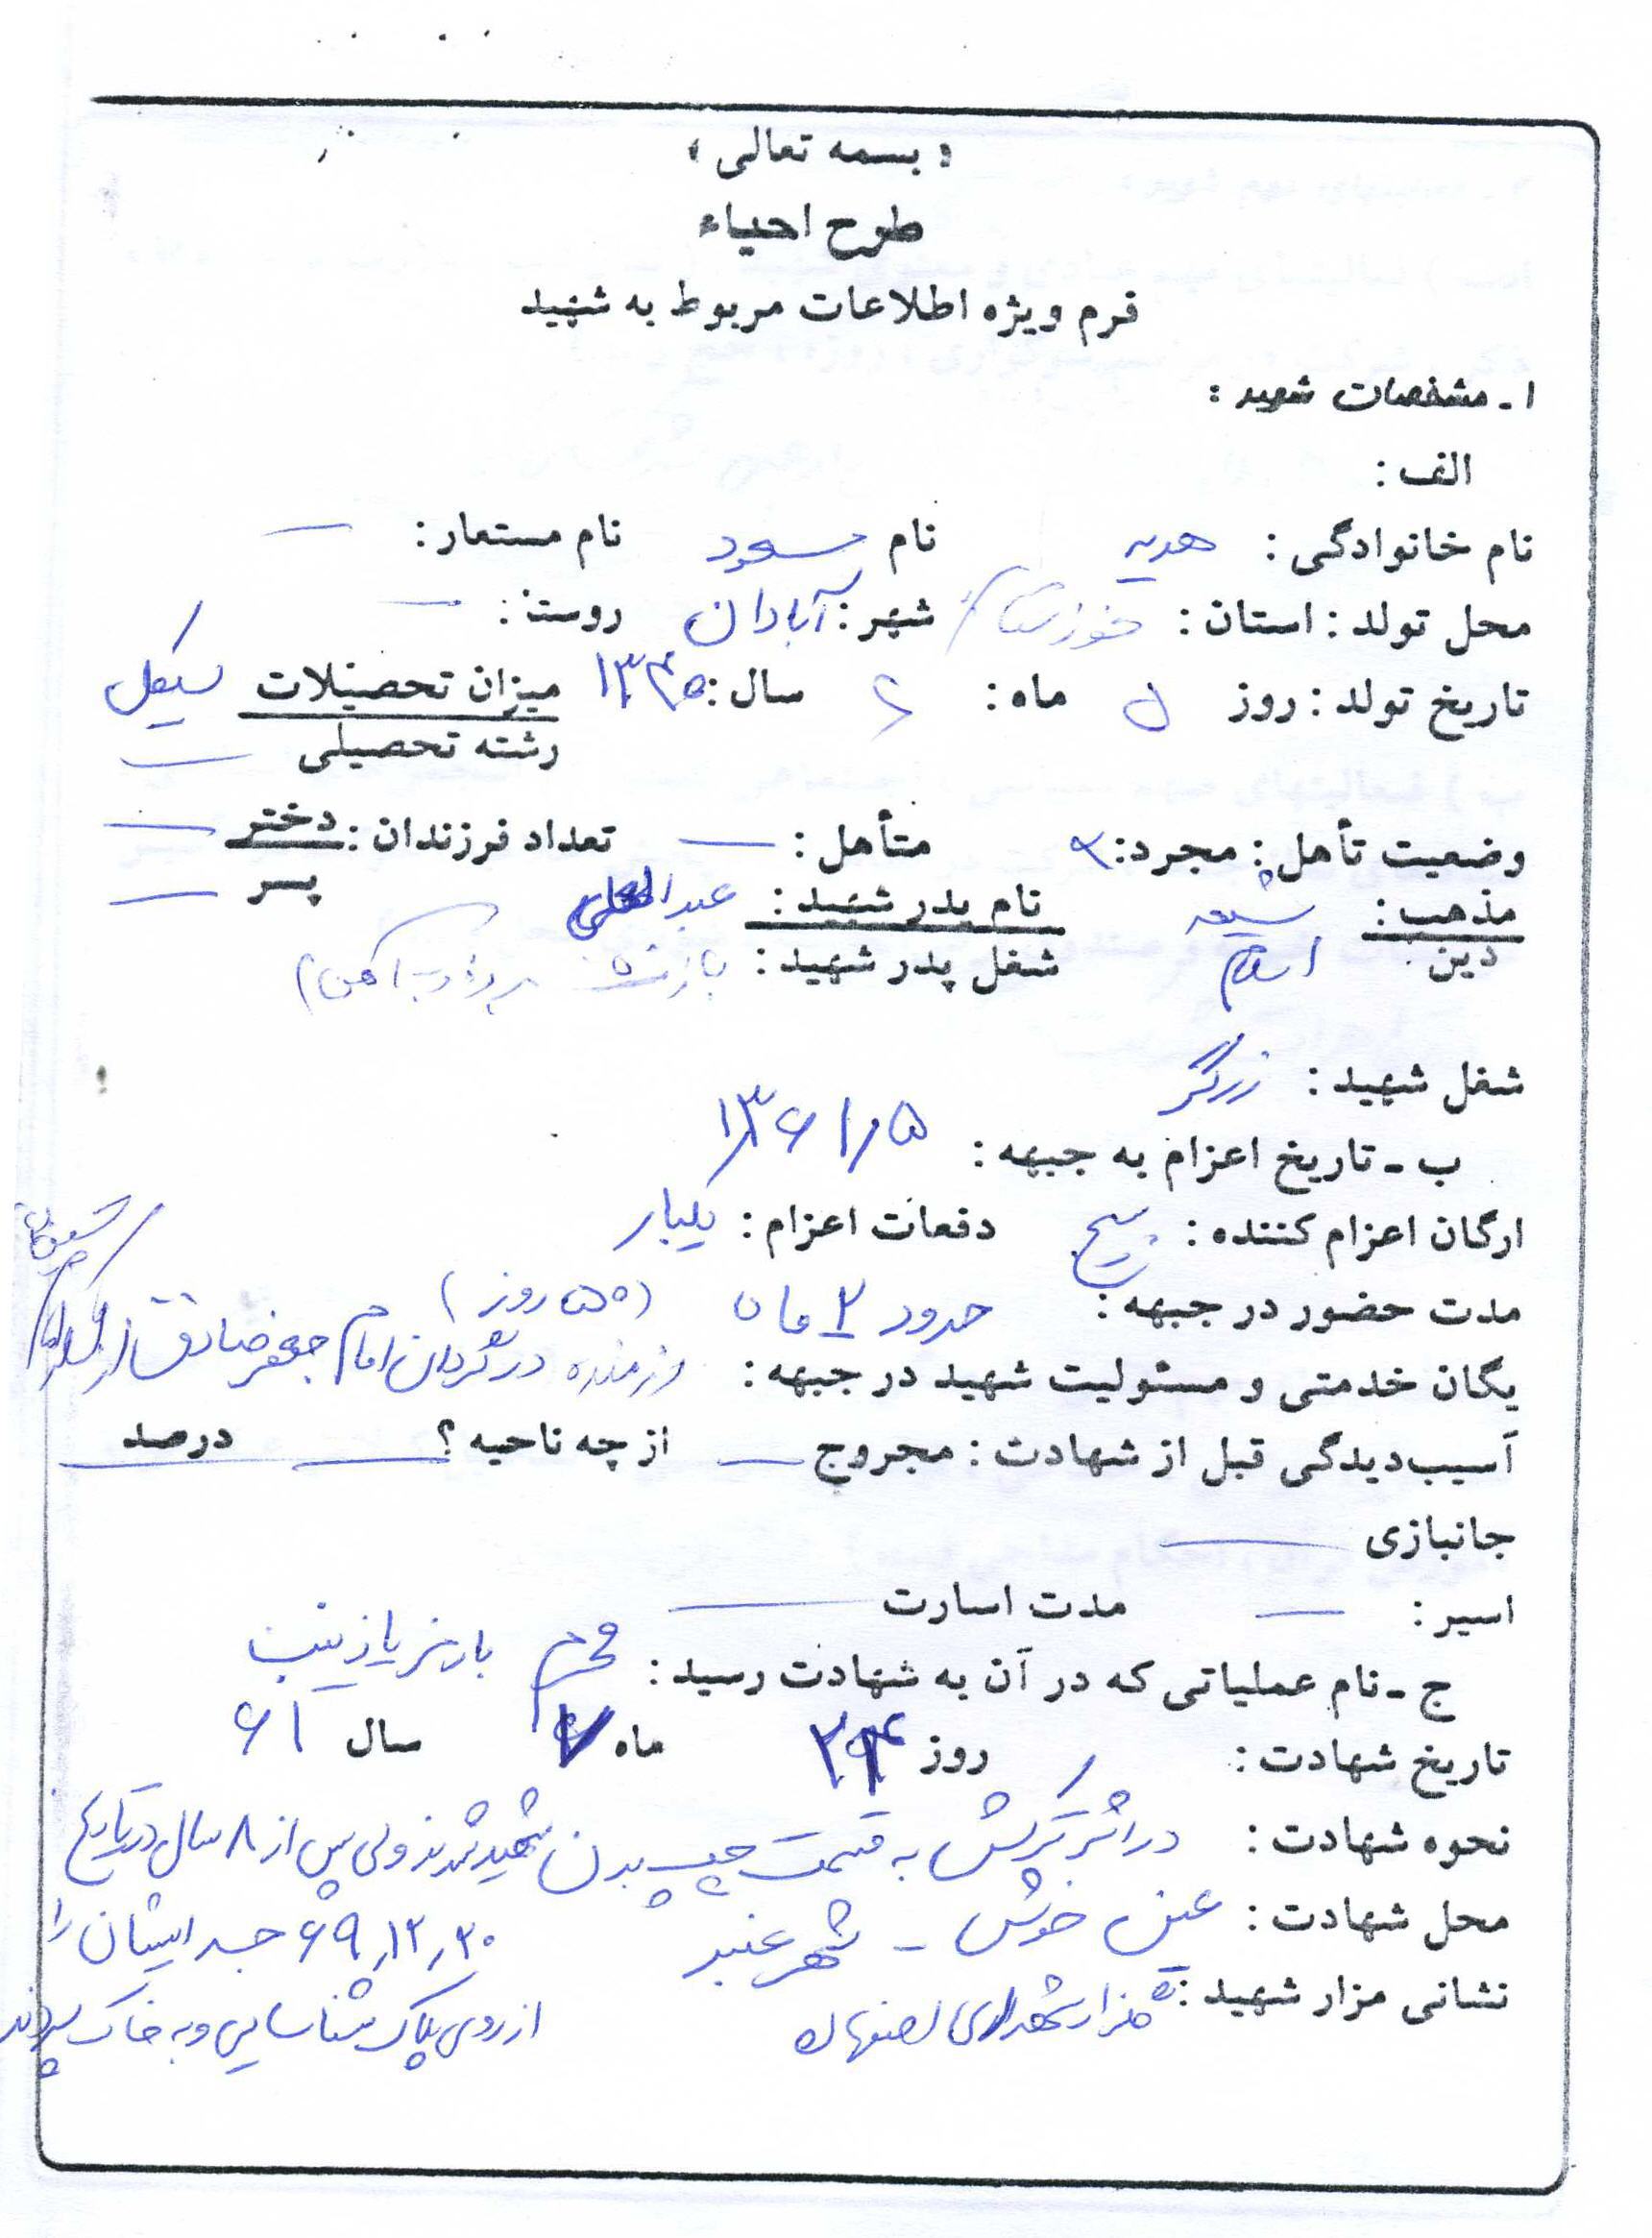 « بسمه تعالی »
طرح احیاء
فرم ویژه اطلاعات مربوط به شهید
۱ - مشخصات شهید :
الف :
نام خانوادگی : هدیه نام مسعود نام مستعار : —
محل تولد : استان : خوزستان شهر : آبادان روستا : —
تاریخ تولد : روز ۵ ماه : ۶ سال : ۱۳۴۵ میزان تحصیلات سیکل
رشته تحصیلی —
وضعیت تأهل : مجرد : متأهل : — تعداد فرزندان : دختر —
پسر —
مذهب : شیعه نام پدر شهید :
دین : اسلام شغل پدر شهید : بازنشسته
شغل شهید : زرگر
ب - تاریخ اعزام به جبهه : ۱۳۶۱/۵
ارگان اعزام کننده : بسیج دفعات اعزام : یکبار
مدت حضور در جبهه : حدود ۲ ماه (۵۰ روز)
یگان خدمتی و مسئولیت شهید در جبهه : رزمنده در گردان امام جعفر صادق از
آسیب‌دیدگی قبل از شهادت : مجروح — از چه ناحیه ؟ — درصد
جانبازی —
اسیر : — مدت اسارت —
ج - نام عملیاتی که در آن به شهادت رسید : محرم با رمز یا زینب
تاریخ شهادت : روز ماه سال ۶۱
نحوه شهادت : در اثر ترکش به قسمت چپ بدن شهید شدند ولی پس از ۸ سال در تاریخ
محل شهادت : عین خوش - شهر عنبر ۶۹٫۱۲٫۲۰ جسد ایشان را
نشانی مزار شهید : گلزار شهدای اصفهان از روی پلاک شناسایی و به خاک سپردند